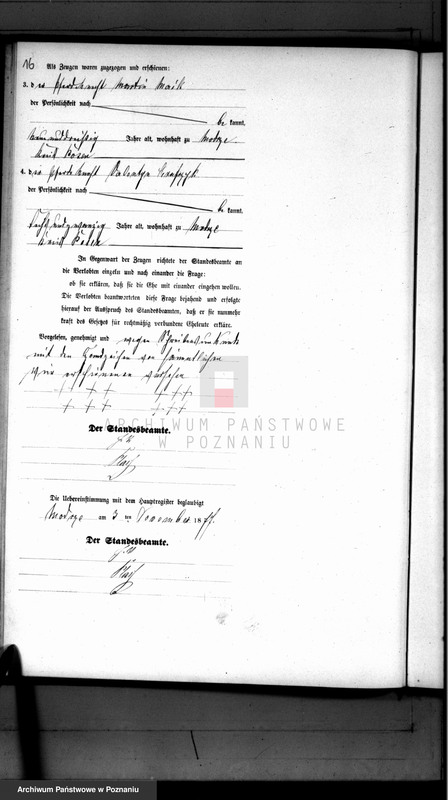 16
Als Zeugen waren zugezogen und erschienen:
3. der Pferdeknecht Martin Maik
der Persönlichkeit nach
be kannt,
neununddreißig Jahre alt, wohnhaft zu Modrze
Kreis Posen
4. der Pferdeknecht Valentyn
der Persönlichkeit nach
be kannt,
Jahre alt, wohnhaft zu Modrze
Kreis Posen
In Gegenwart der Zeugen richtete der Standesbeamte an
die Verlobten einzeln und nach einander die Frage:
ob sie erklären, daß sie die Ehe mit einander eingehen wollen.
Die Verlobten beantworteten diese Frage bejahend und erfolgte
hierauf der Ausspruch des Standesbeamten, daß er sie nunmehr
kraft des Gesetzes für rechtmäßig verbundene Eheleute erkläre.
Vorgelesen, genehmigt und wegen Schreibensunkunde
mit den Handzeichen von sämmtlichen
erschienenen versehen
+ + + + + +
+ + + + + +
ARCHIWUM PAŃSTWOWE
W POZNANIU
Der Standesbeamte.
Die Uebereinstimmung mit dem Hauptregister beglaubigt
Modrze am 3 ten November 1877.
Der Standesbeamte.
Archiwum Państwowe w Poznaniu